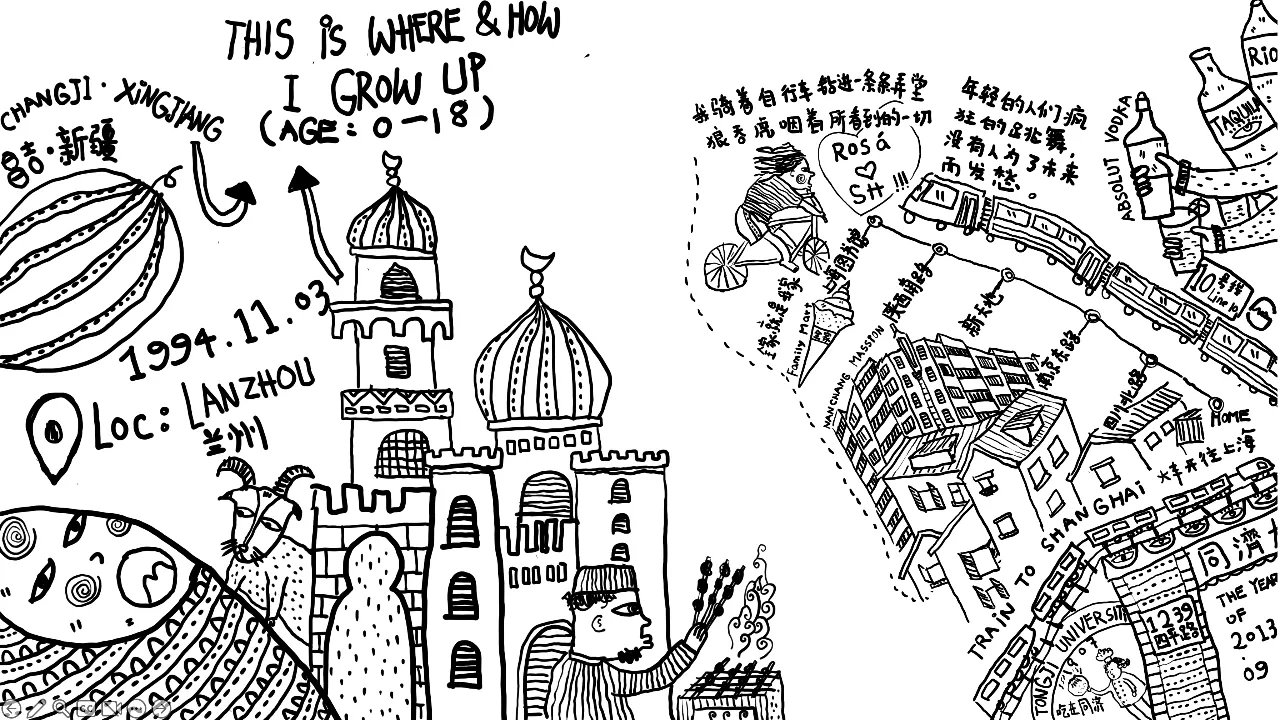 THIS iS WHERE & HOW
I GROW UP
(AGE: 0-18)
CHANGJI · XiNGJiANG
昌吉·新疆
1994.11.03
Loc: LANZHOU
兰州
我骑着自行车钻进一条条弄堂
狼吞虎咽着所看到的一切
ROSá
SH !!!
年轻的人们疯
狂的在跳舞,
没有人为了未来
而发愁。
ABSOLUT VODKA
TAQUILA
Rio
10号线
Line 10
陕西南路
新天地
南京东路
四川北路
HOME
全家就是我家
Family Mart
NANCHANG MASSION
火车开往上海
TRAiN TO SHANGHAi
同济大
THE YEAR
OF
2013
.09
1239
四平路
TONGJI UNIVERSITY
吃在同济